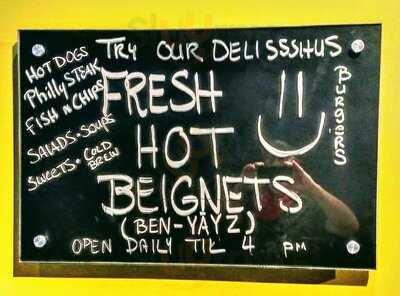 TRY OUR DELISSSHUS
HOT DOGS
Philly STEAK
FISH N CHIPS
SALADS • SOUPS
SWEETS • COLD BREW
FRESH
HOT
BEIGNETS
(BEN-YĀYZ)
OPEN DAILY TIL 4 PM
BURGERS